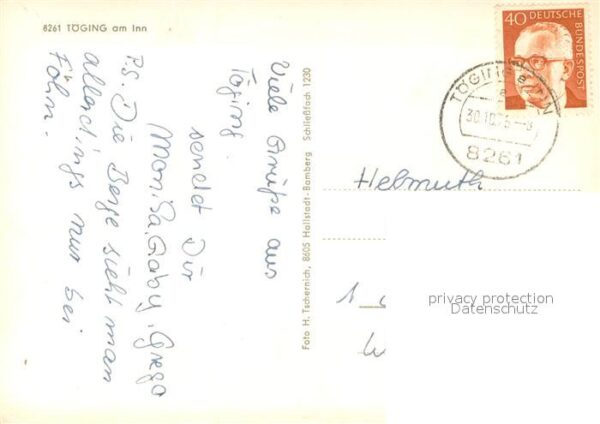 8261 TÖGING am Inn
Viele Grüße aus
Töging
sendet Dir
Monika, Gaby,
P.S. Die Berge sieht man
allerdings nur bei
Föhn.
Foto H. Tschernich, 8605 Hallstadt-Bamberg Schließfach 1230
40 DEUTSCHE BUNDESPOST
TÖGING a. INN
8261
Helmuth
1
privacy protection
Datenschutz